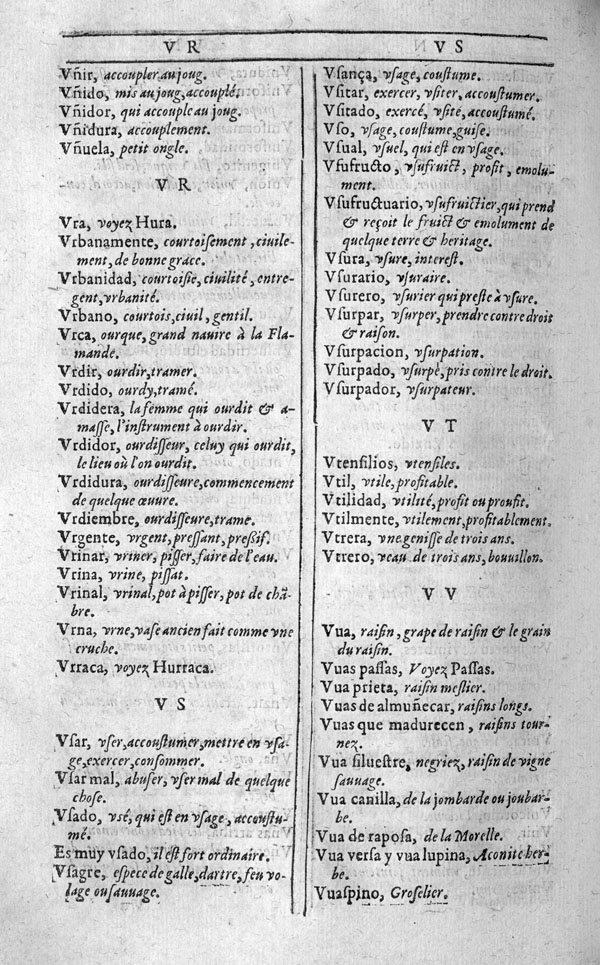 V R
Vñir, accoupler au joug.
Vñido, mis au joug, accouplé.
Vñidor, qui accouple au joug.
Vñidura, accouplement.
Vñuela, petit ongle.
V R
Vra, voyez Hura.
Vrbanamente, courtoisement, ciuile-
ment, de bonne grace.
Vrbanidad, courtoisie, ciuilité, entre-
gent, vrbanité.
Vrbano, courtois, ciuil, gentil.
Vrca, ourque, grand nauire à la Fla-
mande.
Vrdir, ourdir, tramer.
Vrdido, ourdy, tramé.
Vrdidera, la femme qui ourdit & a-
masse, l'instrument à ourdir.
Vrdidor, ourdisseur, celuy qui ourdit,
le lieu où l'on ourdit.
Vrdidura, ourdisseure, commencement
de quelque œuure.
Vrdiembre, ourdisseure, trame.
Vrgente, vrgent, pressant, pressif.
Vrinar, vriner, pisser, faire de l'eau.
Vrina, vrine, pissat.
Vrinal, vrinal, pot à pisser, pot de chā-
bre.
Vrna, vrne, vase ancien fait comme vne
cruche.
Vrraca, voyez Hurraca.
V S
Vsar, vser, accoustumer, mettre en vsa-
ge, exercer, consommer.
Vsar mal, abuser, vser mal de quelque
chose.
Vsado, vsé, qui est en vsage, accoustu-
mé.
Es muy vsado, il est fort ordinaire.
Vsagre, espece de galle, dartre, feu vo-
lage ou sauuage.
V S
Vsança, vsage, coustume.
Vsitar, exercer, vsiter, accoustumer.
Vsitado, exercé, vsité, accoustumé.
Vso, vsage, coustume, guise.
Vsual, vsuel, qui est en vsage.
Vsufructo, vsufruict, profit, emolu-
ment.
Vsufructuario, vsufruictier, qui prend
& reçoit le fruict & emolument de
quelque terre & heritage.
Vsura, vsure, interest.
Vsurario, vsuraire.
Vsurero, vsurier qui preste à vsure.
Vsurpar, vsurper, prendre contre droit
& raison.
Vsurpacion, vsurpation.
Vsurpado, vsurpé, pris contre le droit.
Vsurpador, vsurpateur.
V T
Vtensilios, vtensiles.
Vtil, vtile, profitable.
Vtilidad, vtilité, profit ou proufit.
Vtilmente, vtilement, profitablement.
Vtrera, vne genisse de trois ans.
Vtrero, veau de trois ans, bouuillon.
V V
Vua, raisin, grape de raisin & le grain
du raisin.
Vuas passas, Voyez Passas.
Vua prieta, raisin meslier.
Vuas de almuñecar, raisins longs.
Vuas que madurecen, raisins tour-
nez.
Vua siluestre, negriez, raisin de vigne
sauuage.
Vua canilla, de la jombarde ou joubar-
be.
Vua de raposa, de la Morelle.
Vua versa y vua lupina, Aconite her-
be.
Vuaspino, Groselier.